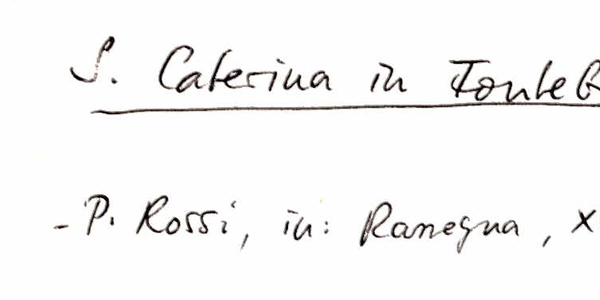 S. Caterina in FonteB
- P. Rossi, in: Rassegna, X